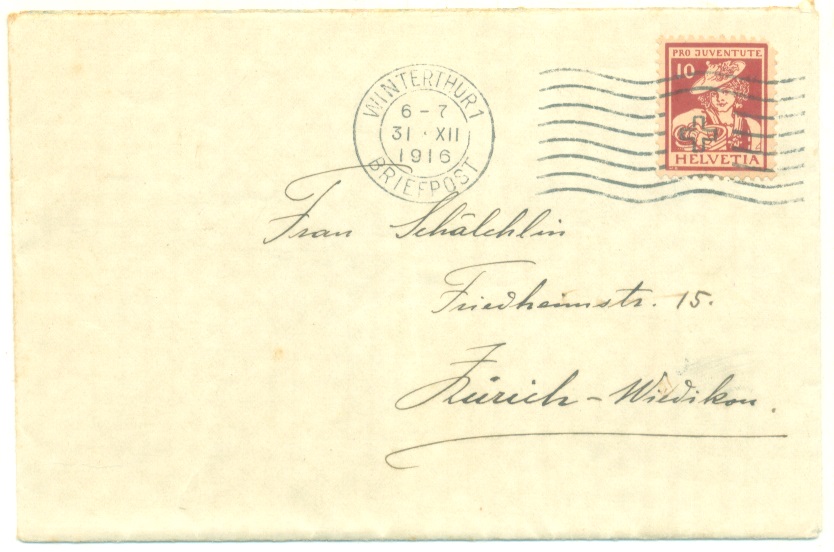 WINTERTHUR 1
6-7
31·XII
1916
BRIEFPOST
PRO JUVENTUTE
10
HELVETIA
Frau Schälchlin
Friedheimstr. 15.
Zürich-Wiedikon.